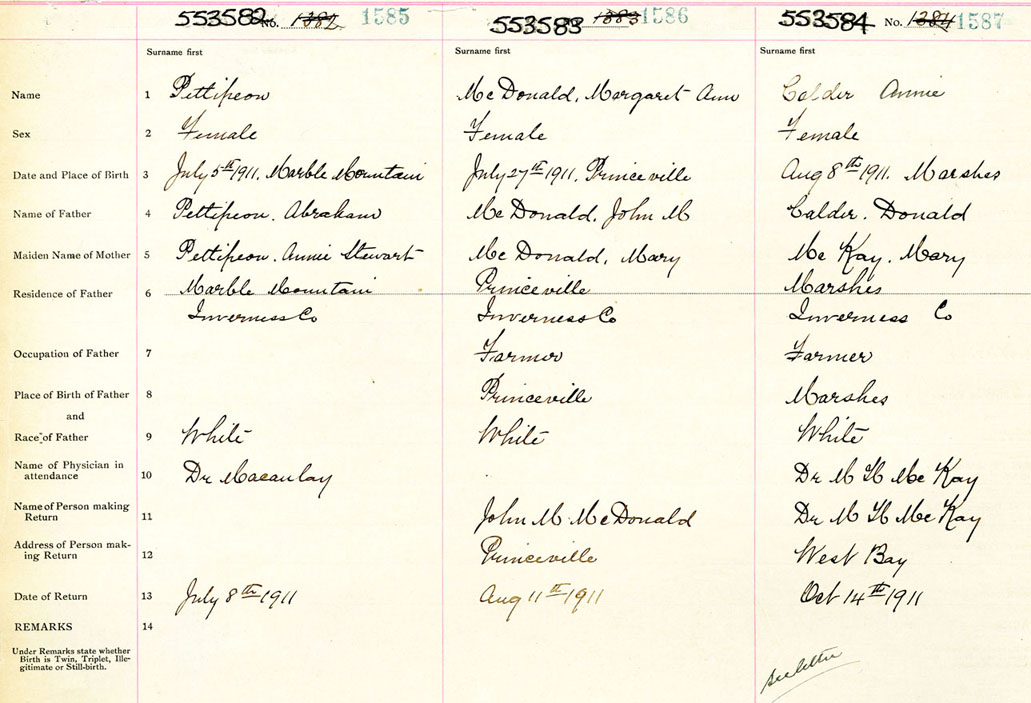 553582 No. 1382 1585
553583 1383 1586
553584 No. 1384 1587
Surname first Surname first Surname first
Name 1 Pettipeon McDonald, Margaret Ann Calder Annie
Sex 2 Female Female Female
Date and Place of Birth 3 July 5th 1911, Marble Mountain July 27th 1911, Princeville Aug 8th 1911, Marshes
Name of Father 4 Pettipeon, Abraham McDonald, John M Calder. Donald
Maiden Name of Mother 5 Pettipeon. Annie Stewart McDonald, Mary McKay. Mary
Residence of Father 6 Marble Mountain Princeville Marshes
Inverness Co Inverness Co Inverness Co
Occupation of Father 7 Farmer Farmer
Place of Birth of Father 8 Princeville Marshes
and
Race of Father 9 White White White
Name of Physician in
attendance 10 Dr Macaulay Dr M H McKay
Name of Person making
Return 11 John M McDonald Dr M H McKay
Address of Person mak-
ing Return 12 Princeville West Bay
Date of Return 13 July 8th 1911 Aug 11th 1911 Oct 14th 1911
REMARKS 14
Under Remarks state whether
Birth is Twin, Triplet, Ille-
gitimate or Still-birth.
see letter